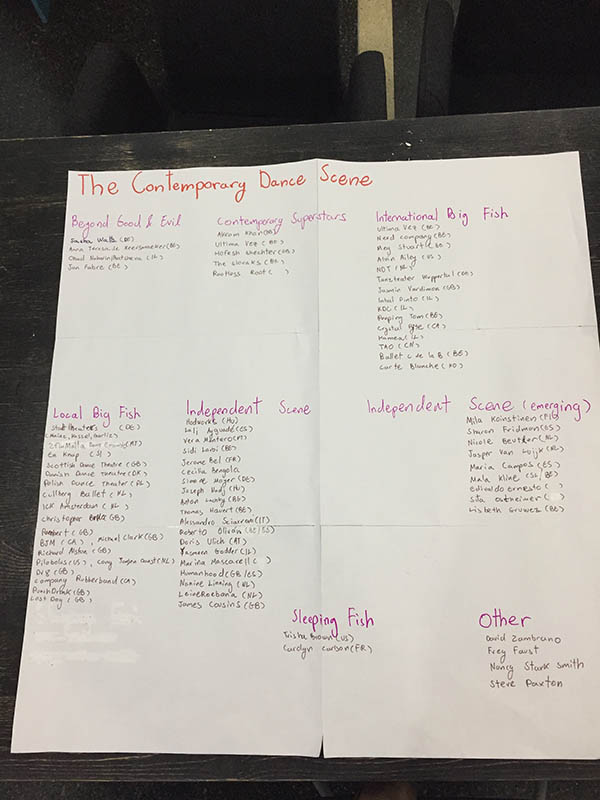 The Contemporary Dance Scene
Beyond Good & Evil
Sasha Waltz (DE)
Anna Teresa de Keersmaeker (BE)
Ohad Naharin/Batsheva (IL)
Jan Fabre (BE)
Contemporary Superstars
Akram Khan (GB)
Ultima Vez (BE)
Hofesh Shechter (GB)
The Slovaks (BE)
Rootless Root ( )
International Big Fish
Ultima Vez (BE)
Need company (BE)
Meg Stuart (BE)
Alvin Ailey (US)
NDT (NL)
Tanztheater Wuppertal (DE)
Jasmin Vardimon (GB)
Inbal Pinto (IL)
KDC (IL)
Peeping Tom (BE)
Crystal Pyte (CA)
(IL)
TAO (CN)
Ballet C de la B (BE)
Carte Blanche (NO)
Local Big Fish
(DE)
(Mainz, Kassel,
(MT)
En Knap (SI)
Scottish Dance Theatre (GB)
Danish Dance Theatre (DK)
Polish Dance Theatre (PL)
Cullberg Ballet (
ICK Amsterdam (NL)
Christopher (GB)
Rambert (GB)
BJM (CA), Michael Clark (GB)
Richard Alston (GB)
Pilobolus (US), Conny Janssen Danst (NL)
DV8 (GB)
Company Rubberband (CA)
PunchDrunk (GB)
Lost Dog (GB)
Independent Scene
Hodworks (HU)
Lali Ayguadé (ES)
Vera Mantero (PT)
Sidi Larbi (BE)
Jerome Bel (FR)
Cecilia Bengolea
Simone (DE)
Joseph Nadj (HU)
Anton Lachky (BE)
Thomas Hauert (BE)
Alessandro Sciarroni (IT)
Roberto Olivan (BE/ES)
Doris Ulich (AT)
Yasmeen Godder (IL)
Marina Mascarell ( )
Humanhood (GB/ES)
Nanine Linning (NL)
LeineRoebana (NL)
James Cousins (GB)
Independent Scene (emerging)
Mila Koinstinen (FI)
Sharon Fridman (ES)
Nicole Beutler (NL)
Jasper Van Luijk (NL)
Maria Campos (ES)
Mala Kline (SI/BE)
Edivaldo Ernesto ( )
Sita Ostheimer ( )
Lisbeth Gruwez (BE)
Sleeping Fish
Trisha Brown (US)
Carolyn Carlson (FR)
Other
David Zambrano
Frey Faust
Nancy Stark Smith
Steve Paxton